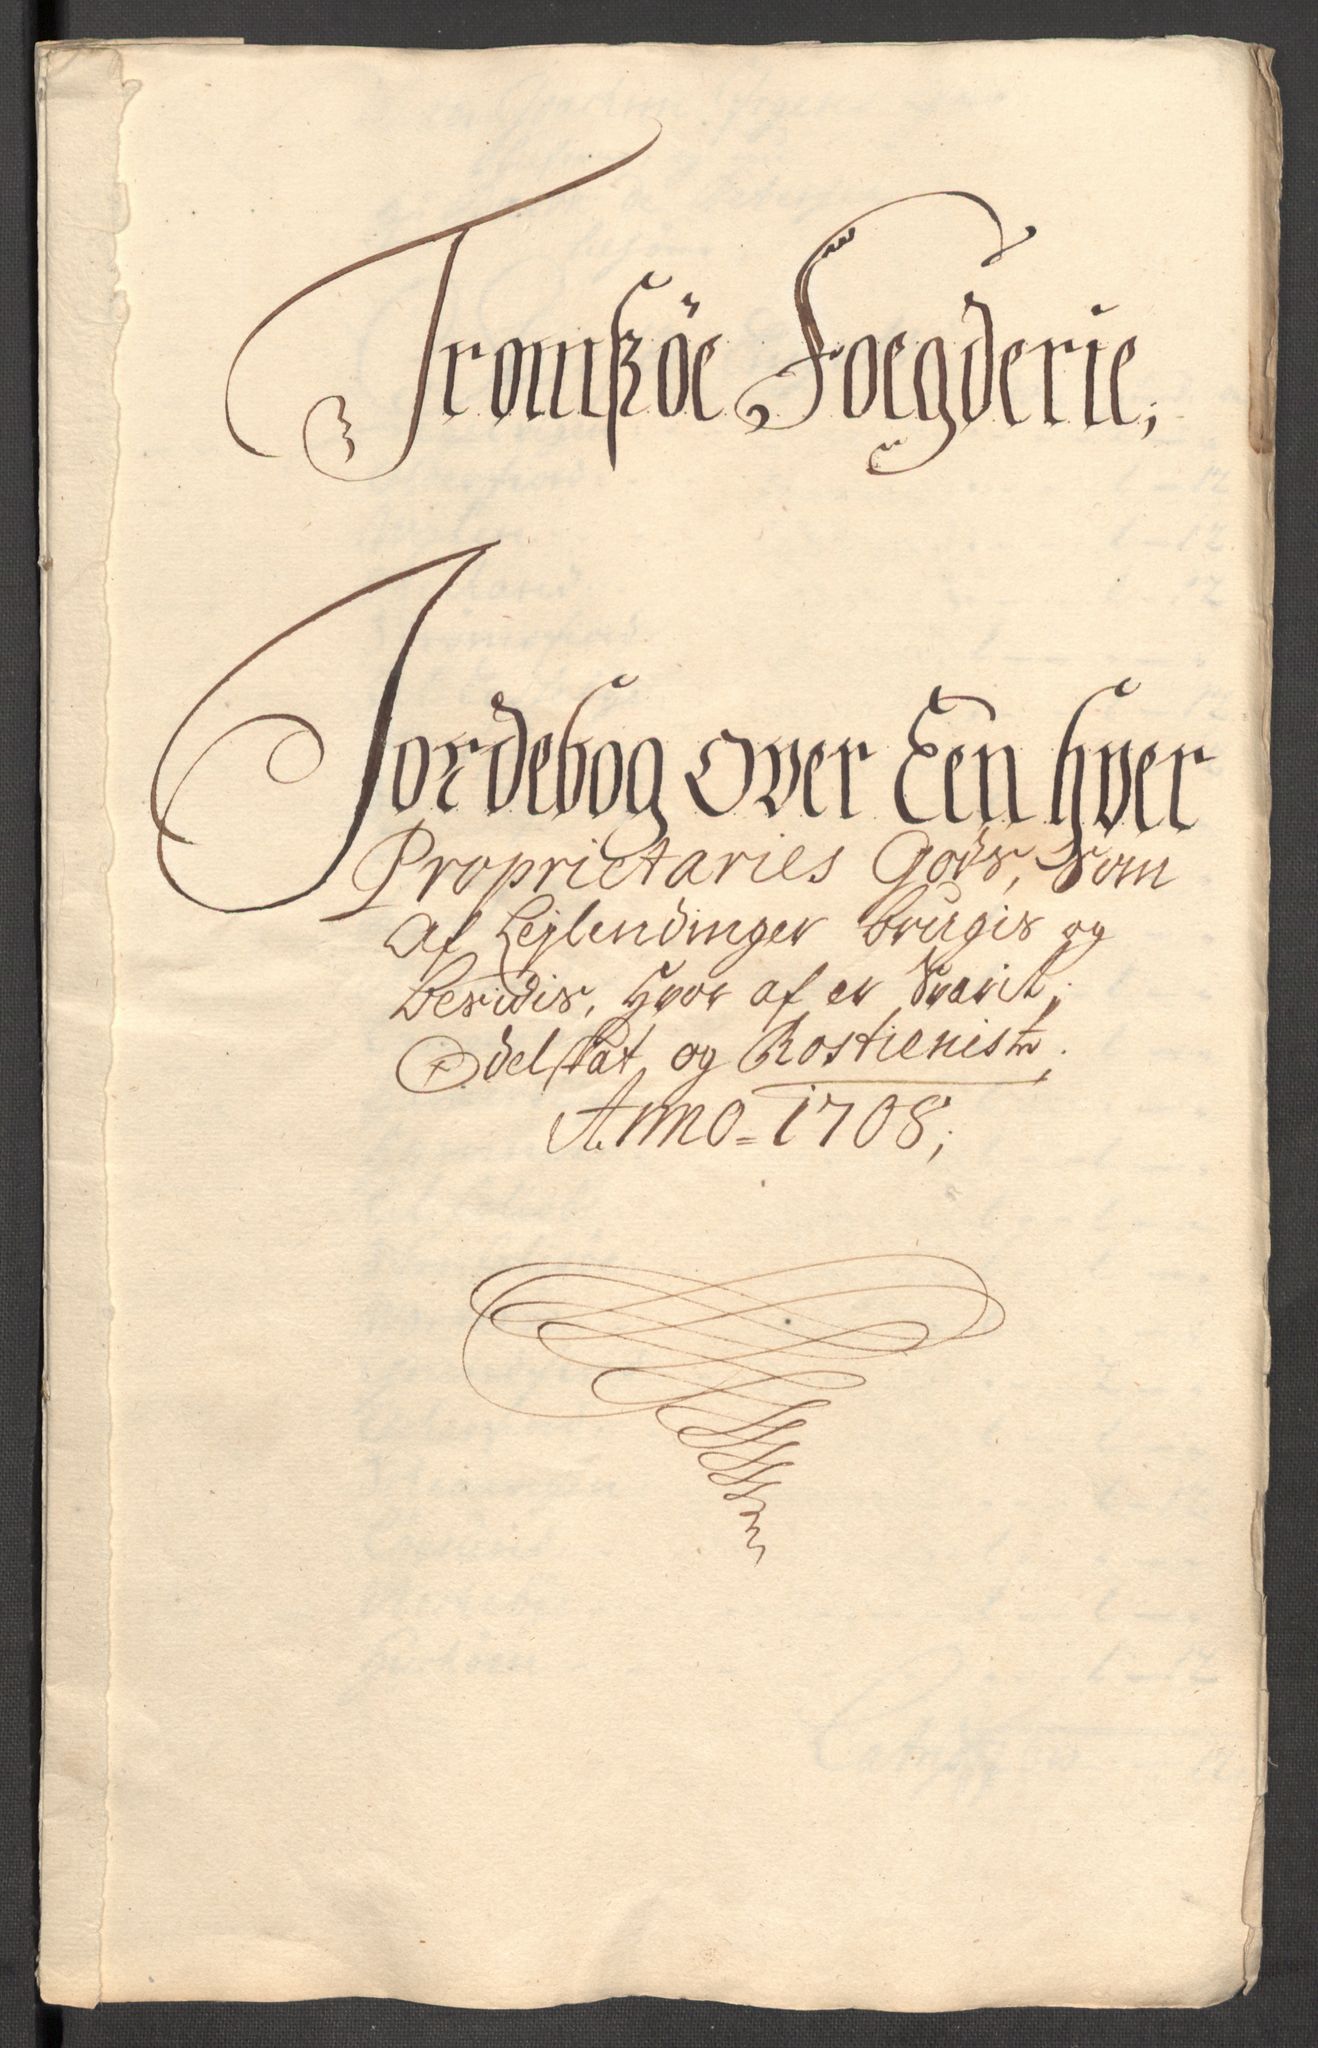 Tromsöe Foegderie,
Jordebog Over Een hver
Proprietaries Gods, som
af Lejlendinger brugis og
besidis, Hvor af er Svarit,
Odelskat og Rostieniste,
Anno = 1708,